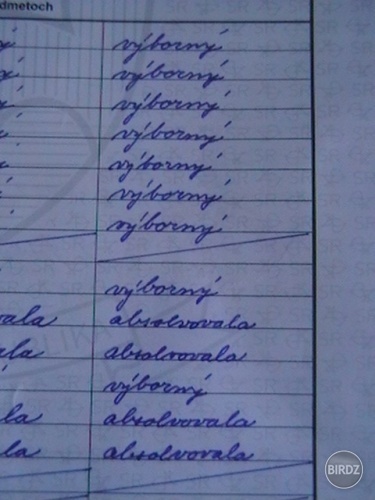 dmetoch
výborný
výborný
výborný
výborný
výborný
výborný
výborný
výborný
vala absolvovala
ala absolvovala
výborný
la absolvovala
la absolvovala
BIRDZ